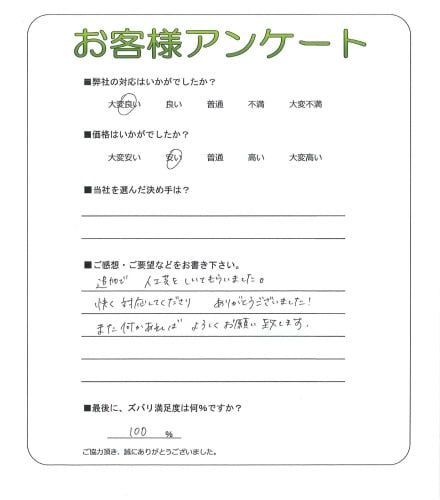 お客様アンケート
■弊社の対応はいかがでしたか？
大変良い 良い 普通 不満 大変不満
■価格はいかがでしたか？
大変安い 安い 普通 高い 大変高い
■当社を選んだ決め手は？
■ご感想・ご要望などをお書き下さい。
追加で 人工芝をしいてもらいました。
快く対応してくださり ありがとうございました！
また何かあれば よろしくお願い致します。
■最後に、ズバリ満足度は何%ですか？
100 %
ご協力頂き、誠にありがとうございました。